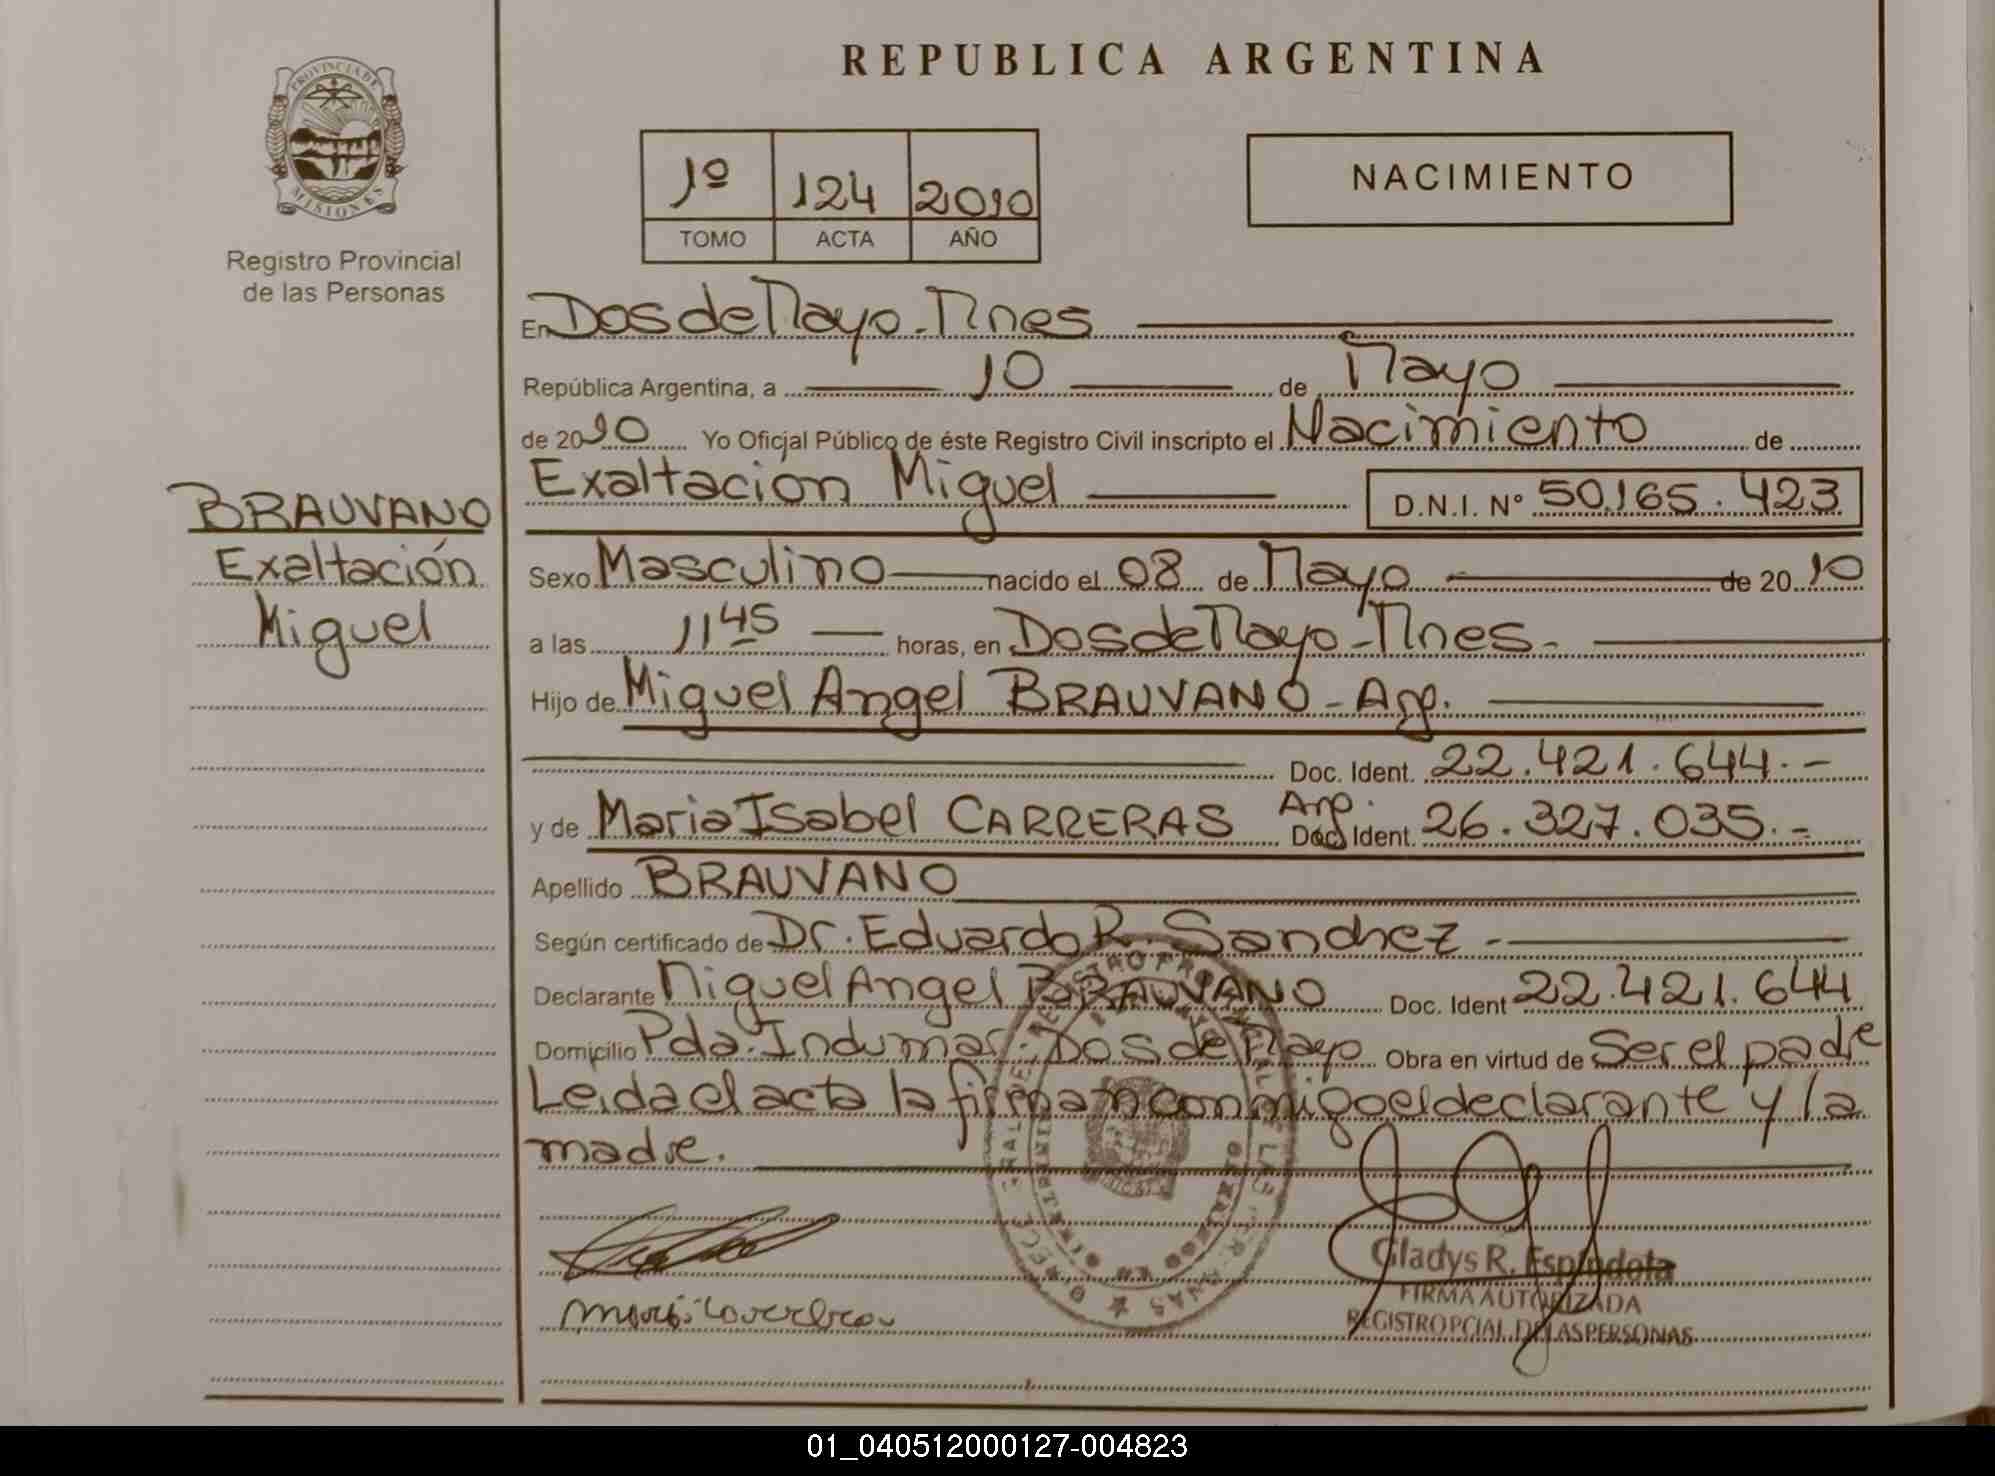 REPUBLICA ARGENTINA
PROVINCIA DE
MISIONES
Registro Provincial
de las Personas
1º 124 2010
TOMO ACTA AÑO
NACIMIENTO
En Dos de Mayo - Mnes
República Argentina, a 10 de Mayo
de 2010 Yo Oficial Público de éste Registro Civil inscripto el Nacimiento de
Exaltación Miguel D.N.I. Nº 50.165.423
BRAUVANO
Exaltación
Miguel
Sexo Masculino nacido el 08 de Mayo de 2010
a las 11 45 horas, en Dos de Mayo - Mnes -
Hijo de Miguel Angel BRAUVANO - Arg.
Doc. Ident. 22.421.644.-
y de Maria Isabel CARRERAS Arg. Doc. Ident. 26.327.035.-
Apellido BRAUVANO
Según certificado de Dr. Eduardo R. Sanchez -
Declarante Miguel Angel BRAUVANO Doc. Ident 22.421.644
Domicilio Pda. Indumar - Dos de Mayo Obra en virtud de Ser el padre
Leida el acta la firman conmigo el declarante y la
madre.
Gladys R. Espindola
FIRMA AUTORIZADA
REGISTRO PCIAL. DE LAS PERSONAS
01_040512000127-004823